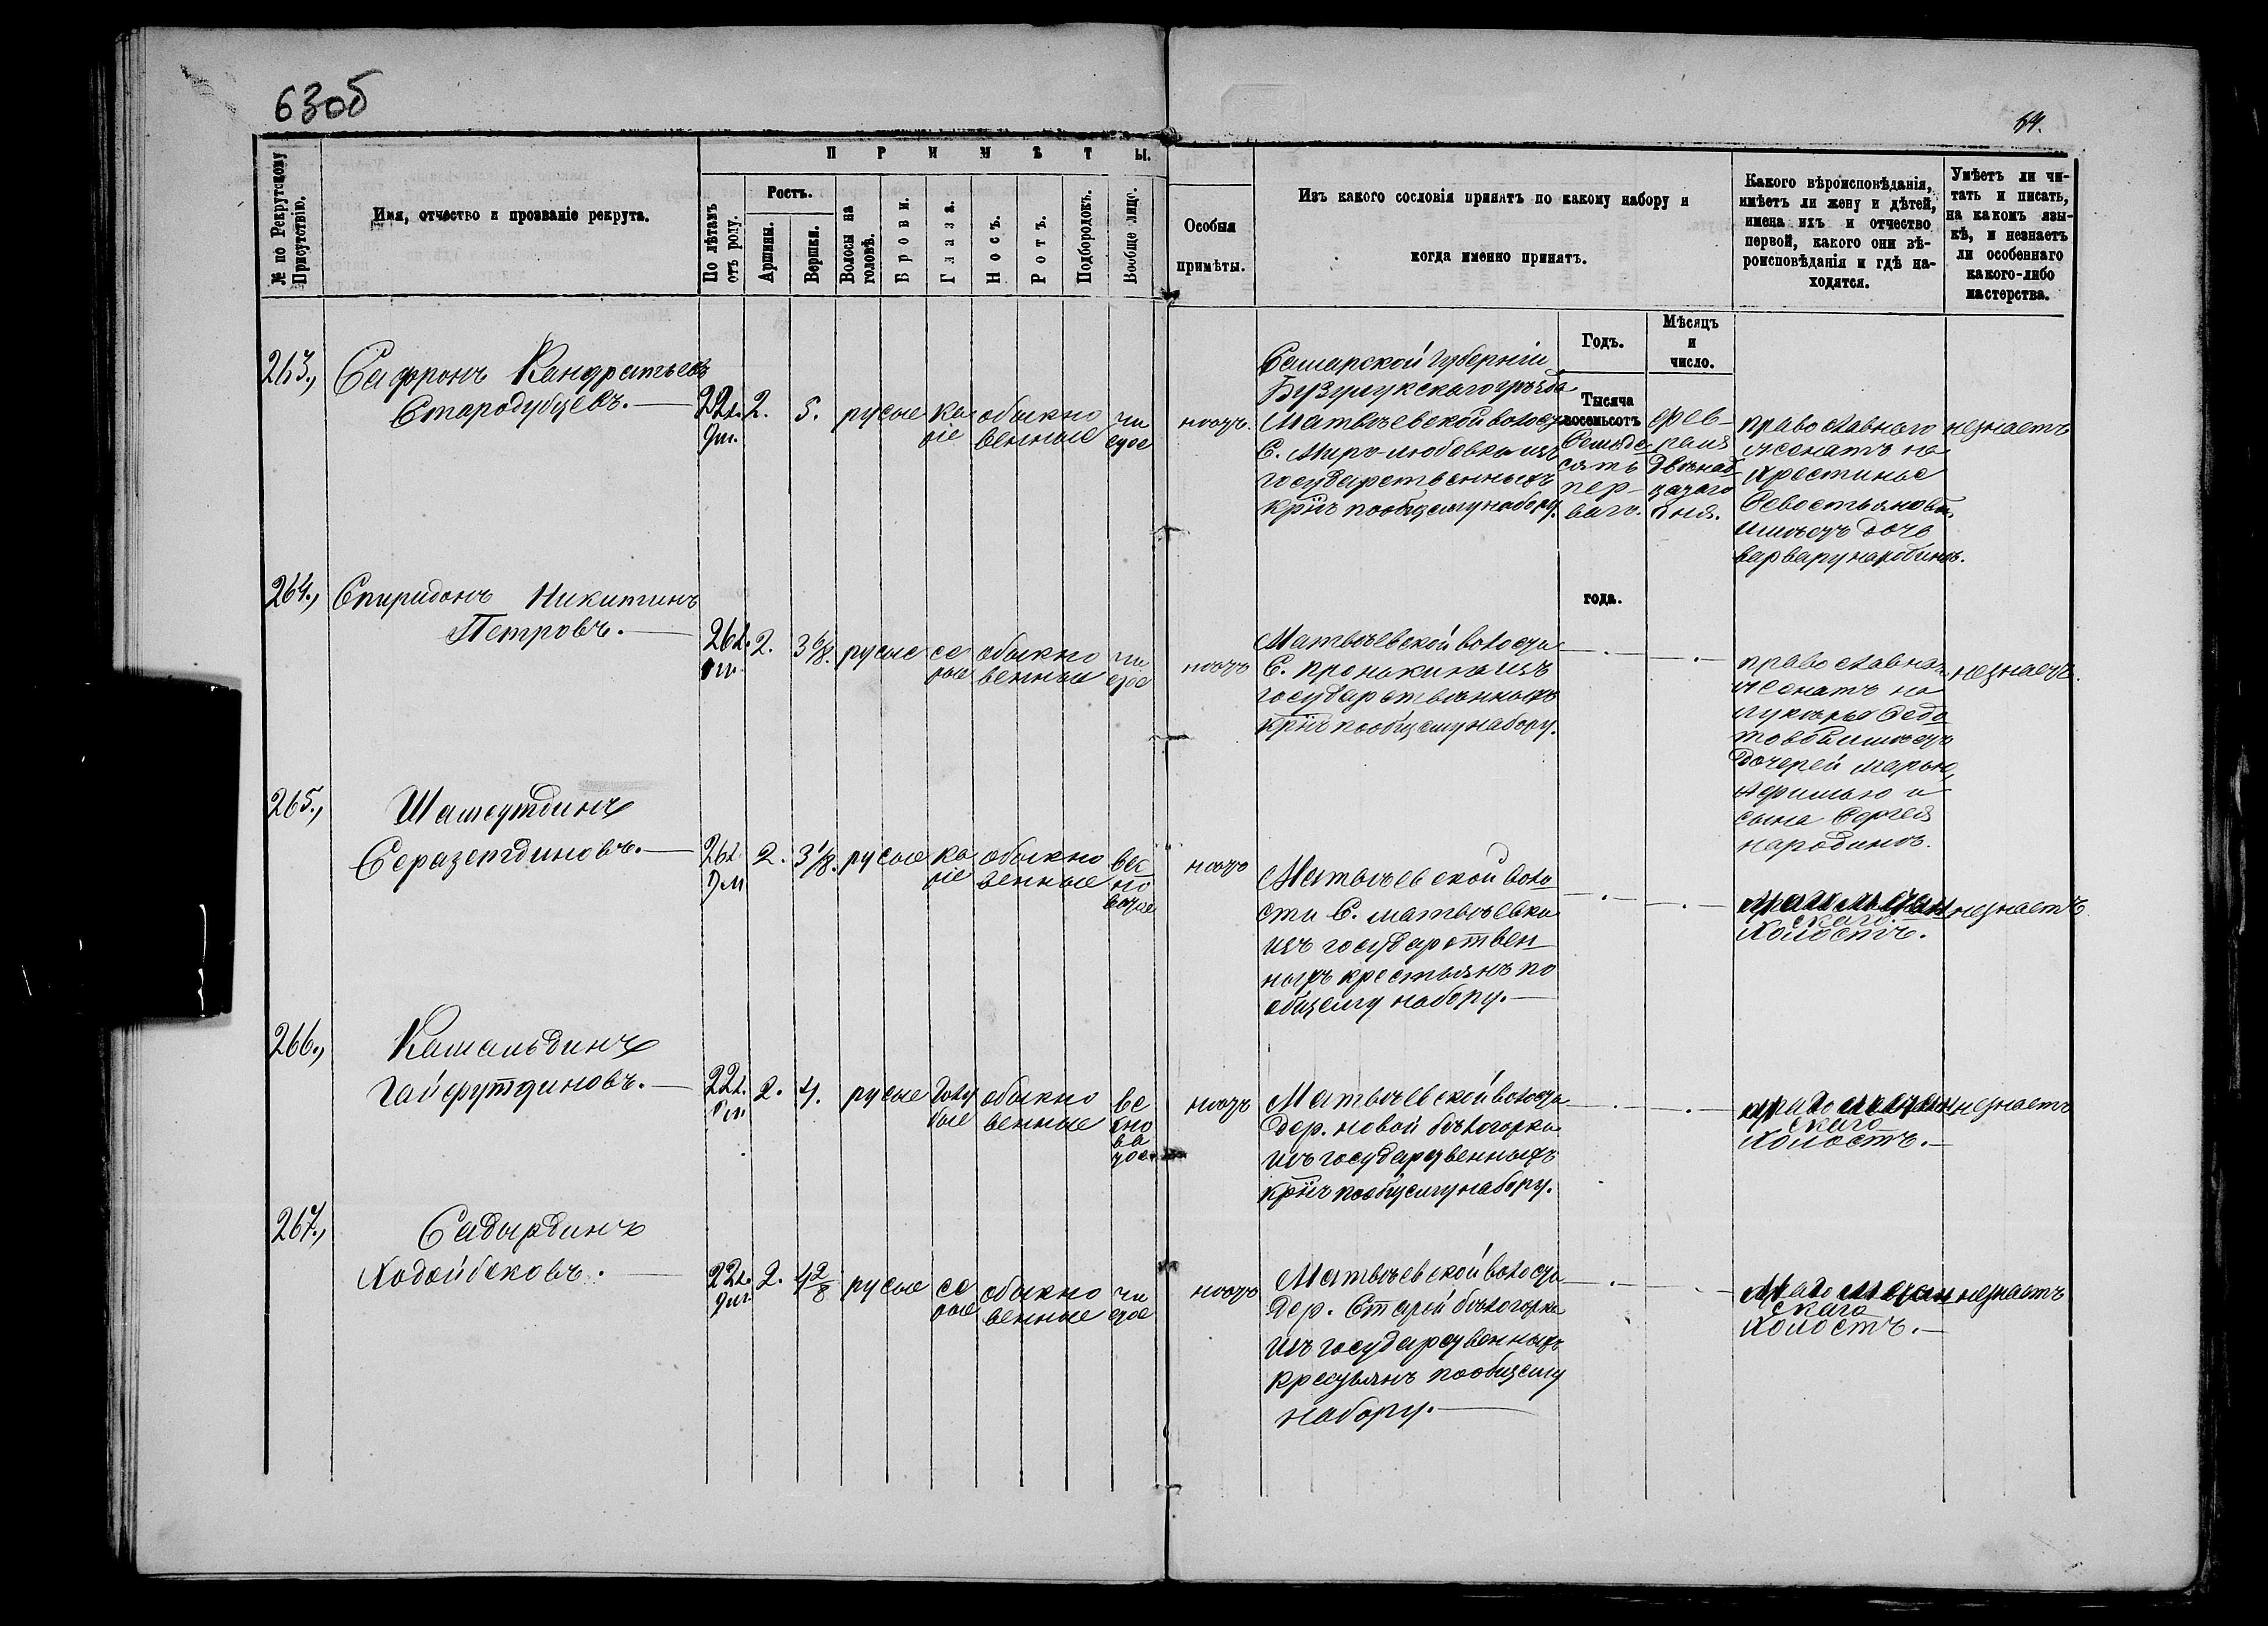 63об
64.
№ по Рекрутскому Присутствію.
Имя, отчество и прозваніе рекрута.
П Р И М Ѣ Т Ы.
По лѣтамъ отъ роду.
Ростъ.
Аршины.
Вершки.
Волосы на головѣ.
Брови.
Глаза.
Носъ.
Ротъ.
Подбородокъ.
Вообще лицо.
Особыя
примѣты.
Изъ какого сословія принятъ по какому набору и
когда именно принятъ.
Какого вѣроисповѣданія,
имѣетъ ли жену и дѣтей,
имена ихъ и отчество
первой, какого они вѣ-
роисповѣданія и гдѣ на-
ходятся.
Умѣетъ ли чи-
тать и писать,
на какомъ язы-
кѣ, и незнаетъ
ли особеннаго
какого-либо
мастерства.
Годъ.
Мѣсяцъ
и
число.
263.,
Сафронъ Кандратьевъ
Стародубцевъ.—
22 л.
9 м.
2.
5.
русые
ка
ріе
обыкно
венные
чи
стое
нѣтъ.
Самарской губерніи
Бузулукскаго уѣзда
Матвѣевской волости
С. Миро-любовка изъ
государственныхъ
крнъ пообщему набору.
Тысяча
восемьсотъ
Семьде
сятъ
пер-
ваго.
года.
Фев-
раля
Двѣнад
цатаго
дня.
православнаго
женатъ на
Христинье
Севостьяновой
имѣетъ дочь
варвару народинѣ.
незнаетъ
264.,
Спиридонъ Никитинъ
Петровъ.—
26 л.
2.
3 6/8.
русые
се
рые
обыкно
венные
чи
стое
нѣтъ
Матвѣевской волости
С. Пронькина изъ
государственныхъ
крнъ пообщему набору.
православнаго
женатъ на
лукѣрье Федо
товой имѣетъ
дочерей марью,
Афимью и
сына Сергея
народинѣ.
незнаетъ.
265.,
Шамсутдинъ
Серазетдиновъ.—
26 л
7 м
2.
3 1/8.
русые
ка
ріе
обыкно
венные
вес
но
ватое
нѣтъ
Матвѣевской воло
сти С. матвѣевки
изъ государствен
ныхъ крестьянъ по
общему набору.—
скаго.
Холостъ.
незнаетъ
266.,
Камальдинъ
Гайфутдиновъ.—
22 л.
2.
4.
русые
Голу
бые
обыкно
венные
ве
сно
ва
тое
нѣтъ
Матвѣевской волости
дер. новой бѣлогорки
изъ государственныхъ
крнъ пообщему набору.
скаго
Холостъ.—
незнаетъ
267.,
Садырдинъ
Ходойбековъ.
22 л.
9 м.
2.
4 2/8
русые
се
рые
обыкно
венные
чи
стое
нѣтъ
Матвѣевской волости
дер. Старой бѣлогорки
изъ государственныхъ
крестьянъ пообщему
набору.—
скаго
Холостъ.—
незнаетъ